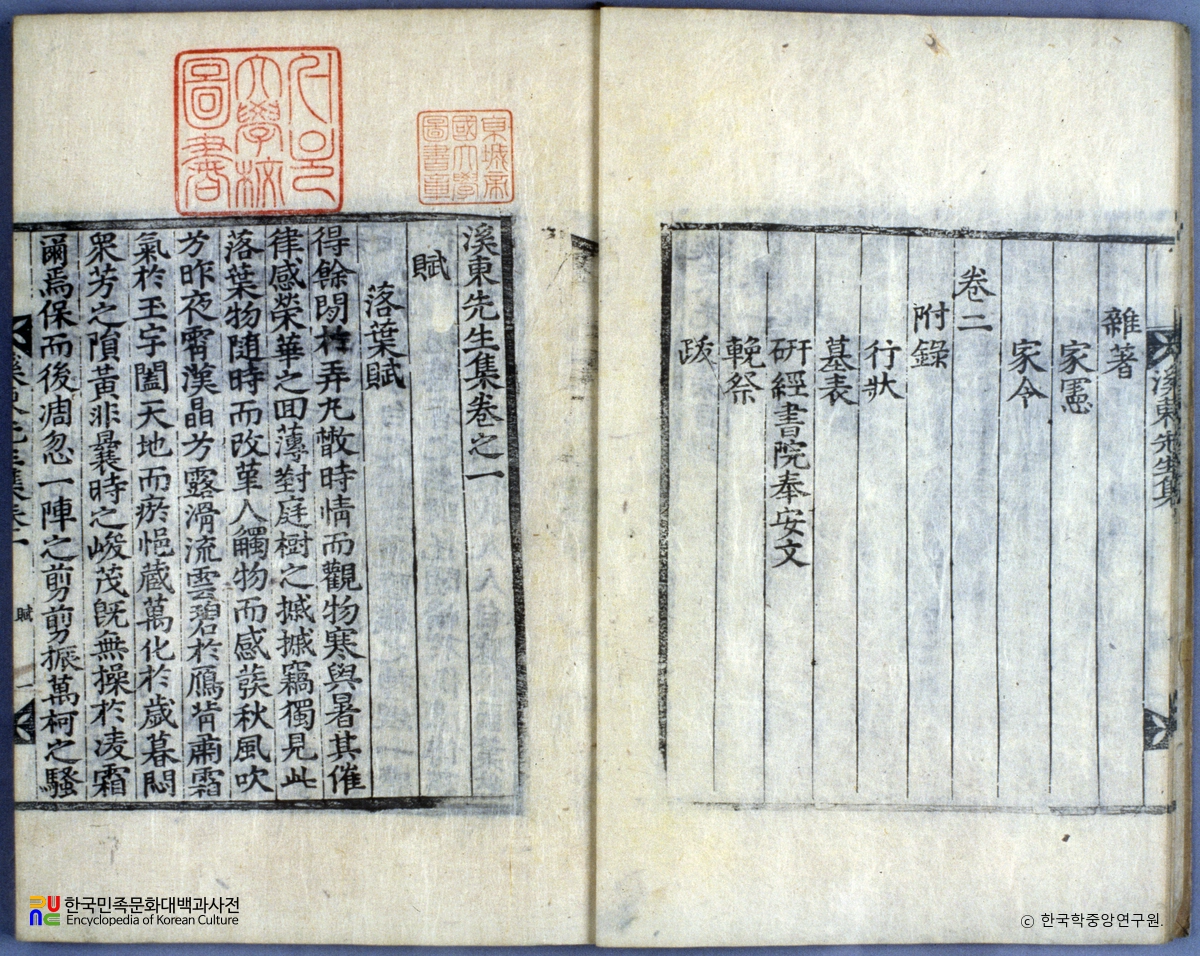 雜著
家憲
家令
卷二
附錄
行狀
墓表
硏經書院奉安文
輓祭
跋
溪東先生集
溪東先生集卷之一
賦
落葉賦
得餘閒於弄丸撒時情而觀物寒與暑其催
律感榮華之回薄對庭樹之摵摵竊獨見此
落葉物随時而改革人觸物而感葵秋風吹
兮昨夜霄漢晶兮露滑流雲碧於鴈背肅霜
氣於玉宇闔天地而瘀悒藏萬化於歲暮悶
衆芳之隕黃非曩時之峻茂旣無操於凌霜
爾焉保而後凋忽一陣之剪剪振萬柯之騷
賦
一
圖書
大學校
東城帝
國大學
圖書章
한국민족문화대백과사전
Encyclopedia of Korean Culture
ⓒ 한국학중앙연구원.